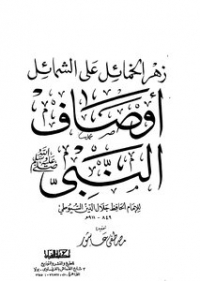 زهر الخمائل على الشمائل
أوصاف
النبي ﷺ
للإمام الحافظ جلال الدين السيوطي
٨٤٩ - ٩١١ هـ
مصطفى عاشور